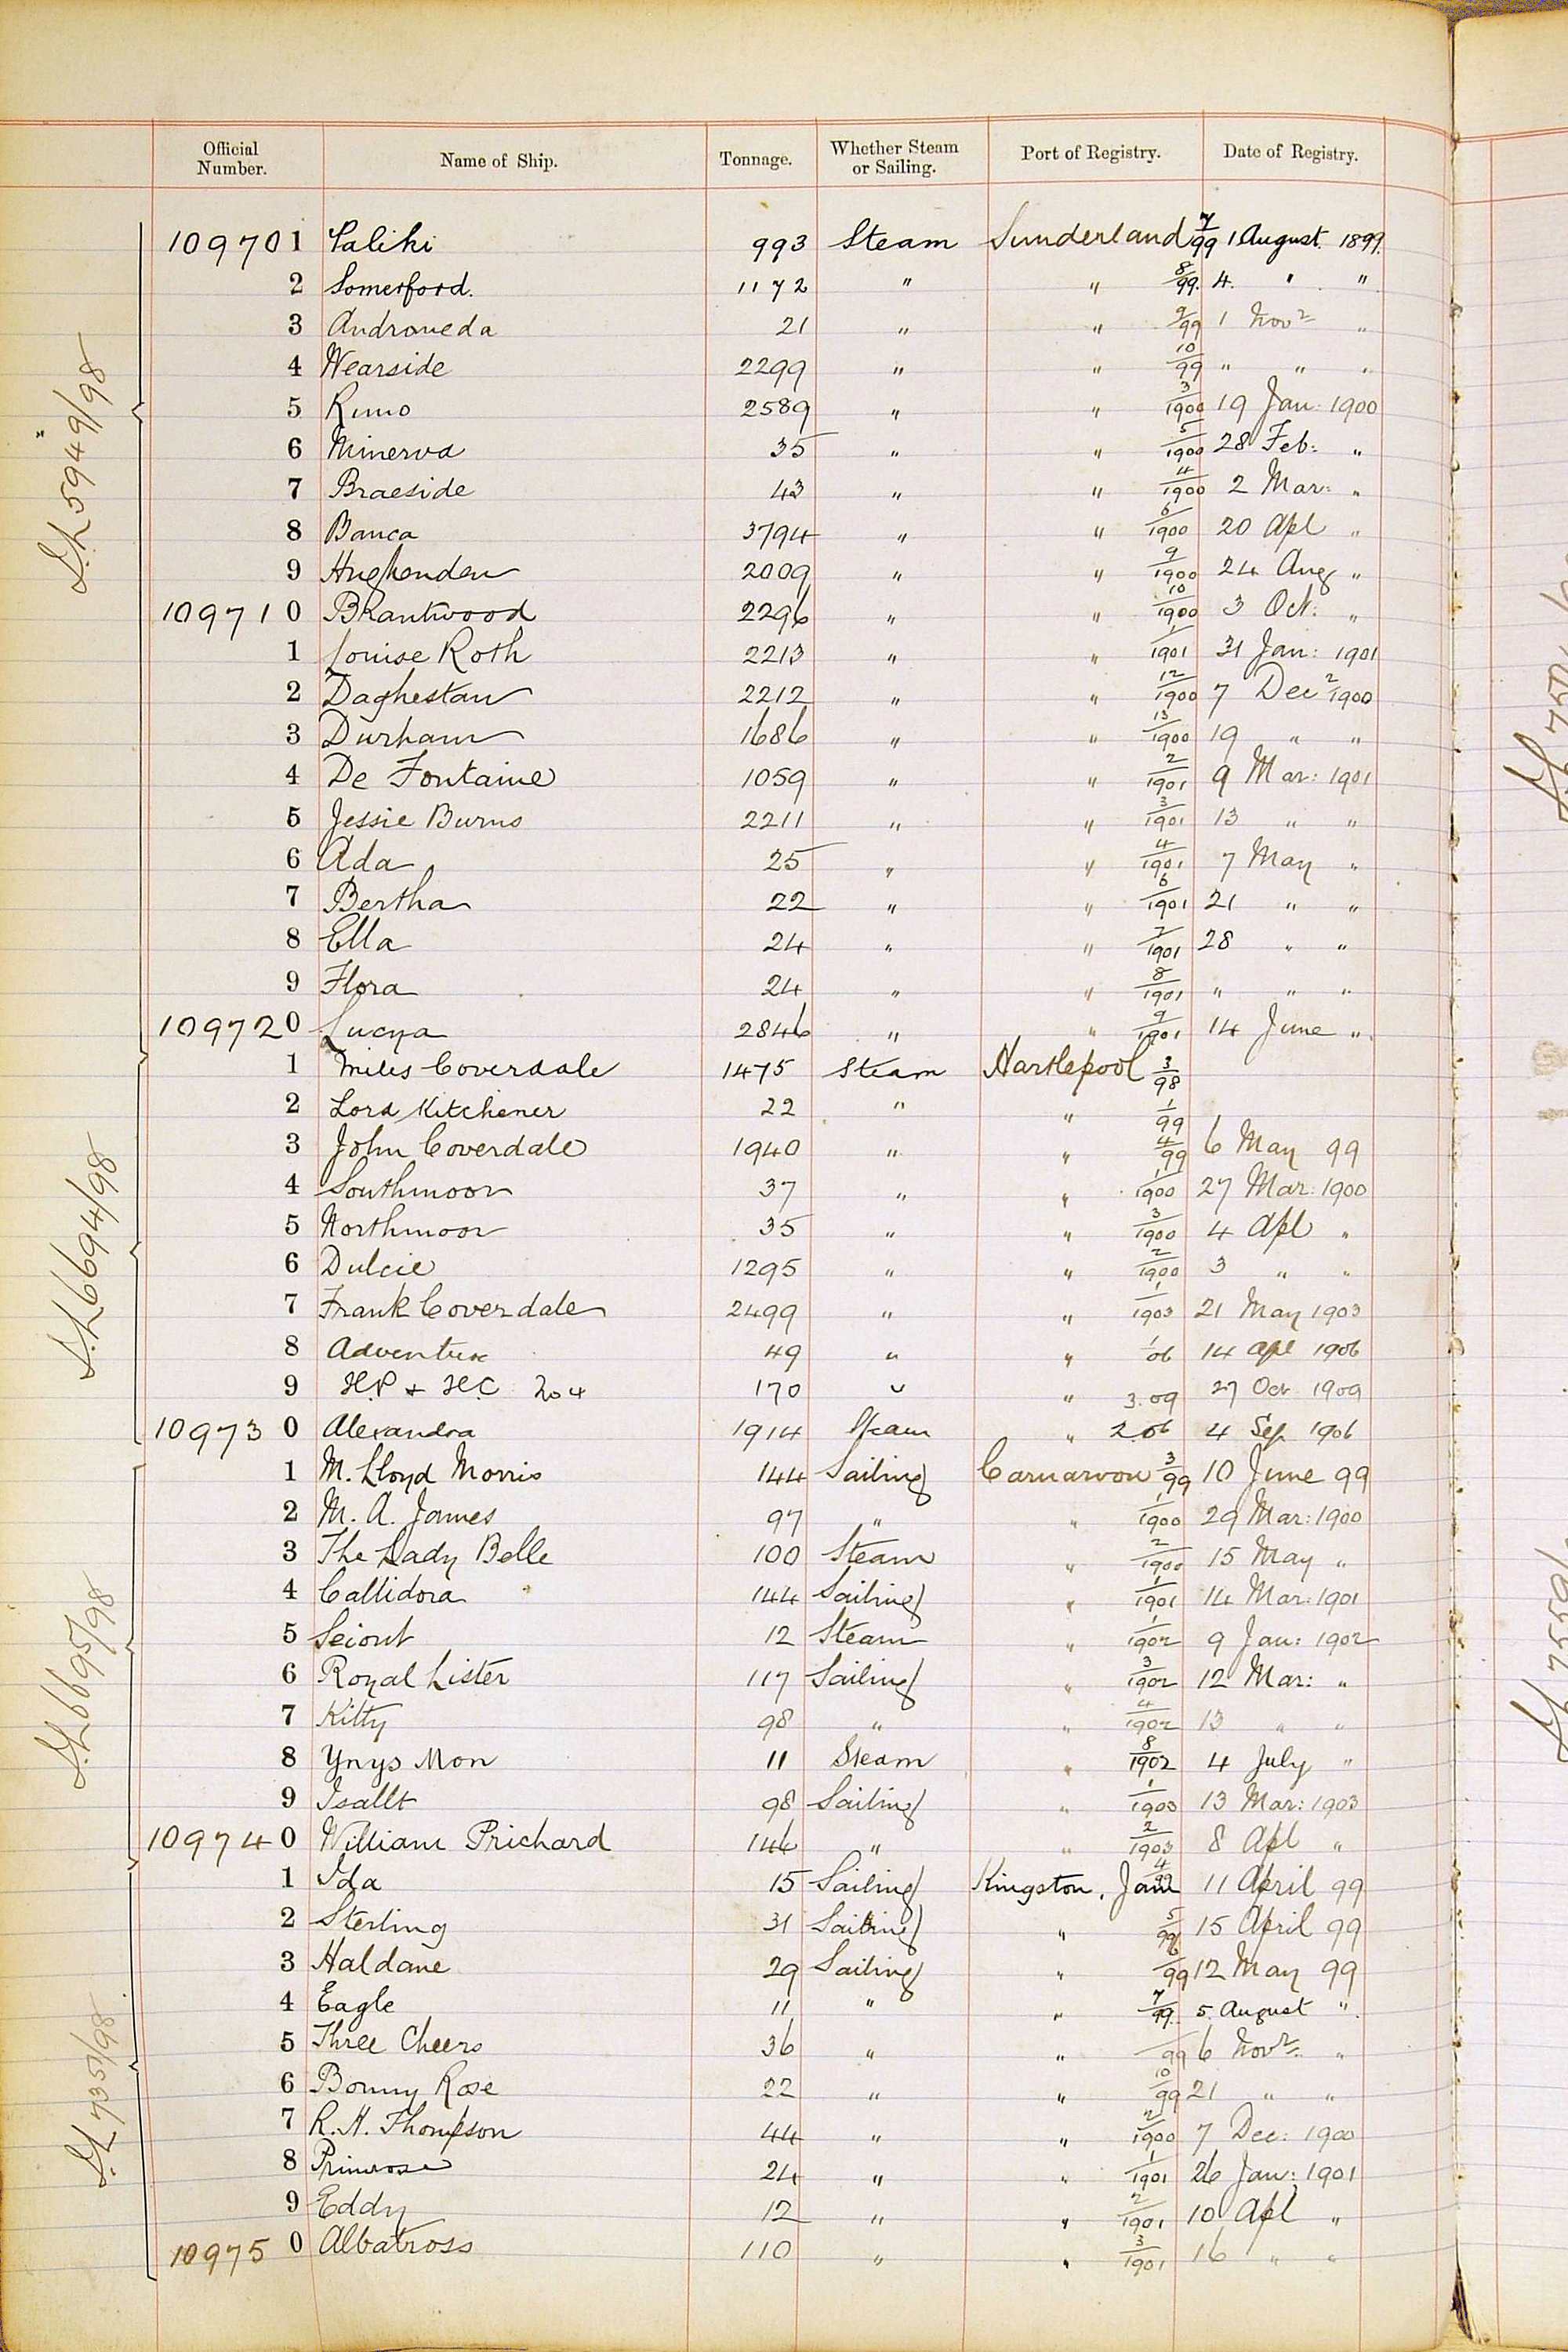 Official Number. Name of Ship. Tonnage. Whether Steam or Sailing. Port of Registry. Date of Registry.
109701 Taliki 993 Steam Sunderland 7/99 1 August. 1899.
2 Somerford. 1172 " " 8/99. 4. " "
3 Andromeda 21 " " 9/99 1 Novr "
4 Wearside 2299 " " 10/99 " " "
5 Runo 2589 " " 3/1900 19 Jan: 1900
6 Minerva 35 " " 5/1900 28 Feb: "
7 Braeside 43 " " 4/1900 2 Mar: "
8 Banca 3794 " " 6/1900 20 Apl "
9 Hughenden 2009 " " 9/1900 24 Aug "
109710 Brantwood 2296 " " 10/1900 3 Oct: "
1 Louise Roth 2213 " " 1/1901 31 Jan: 1901
2 Daghestan 2212 " " 12/1900 7 Decr 1900
3 Durham 1686 " " 13/1900 19 " "
4 De Fontaine 1059 " " 2/1901 9 Mar: 1901
5 Jessie Burns 2211 " " 3/1901 13 " "
6 Ada 25 " " 4/1901 7 May "
7 Bertha 22 " " 6/1901 21 " "
8 Ella 24 " " 7/1901 28 " "
9 Flora 24 " " 8/1901 " " "
109720 Lucya 2846 " " 9/1901 14 June "
1 Miles Coverdale 1475 Steam Hartlepool 3/98
2 Lord Kitchener 22 " " 1/99
3 John Coverdale 1940 " " 4/99 6 May 99
4 Southmoor 37 " " 1/1900 27 Mar: 1900
5 Northmoor 35 " " 3/1900 4 Apl "
6 Dulcie 1295 " " 2/1900 3 " "
7 Frank Coverdale 2499 " " 1/1903 21 May 1903
8 Adventure 49 " " 1/06 14 Apl 1906
9 H.P & H.C 204 170 " " 3.09 27 Oct 1909
109730 Alexandra 1914 Steam " 2.06 4 Sep 1906
1 M. Lloyd Morris 144 Sailing Carnarvon 3/99 10 June 99
2 M. A. James 97 " " 1/1900 29 Mar: 1900
3 The Lady Belle 100 Steam " 2/1900 15 May "
4 Callidora 144 Sailing " 1/1901 14 Mar: 1901
5 Seiont 12 Steam " 1/1902 9 Jan: 1902
6 Royal Lister 117 Sailing " 3/1902 12 Mar: "
7 Kitty 98 " " 4/1902 13 " "
8 Ynys Mon 11 Steam " 8/1902 4 July "
9 Isallt 98 Sailing " 1/1903 13 Mar: 1903
109740 William Prichard 146 " " 2/1903 8 Apl "
1 Ida 15 Sailing Kingston, Jam 4/99 11 April 99
2 Sterling 31 Sailing " 5/99 15 April 99
3 Haldane 29 Sailing " 6/99 12 May 99
4 Eagle 11 " " 7/99. 5. August "
5 Three Cheers 36 " " /99 6 Novr. "
6 Bonny Rose 22 " " 10/99 21 " "
7 R. H. Thompson 44 " " 2/1900 7 Dec: 1900
8 Primrose 24 " " 1/1901 26 Jan: 1901
9 Eddy 12 " " 2/1901 10 Apl "
109750 Albatross 110 " " 3/1901 16 " "
S.L 5949/98
S.L 6694/98
S.L 6695/98
S.L 7357/98